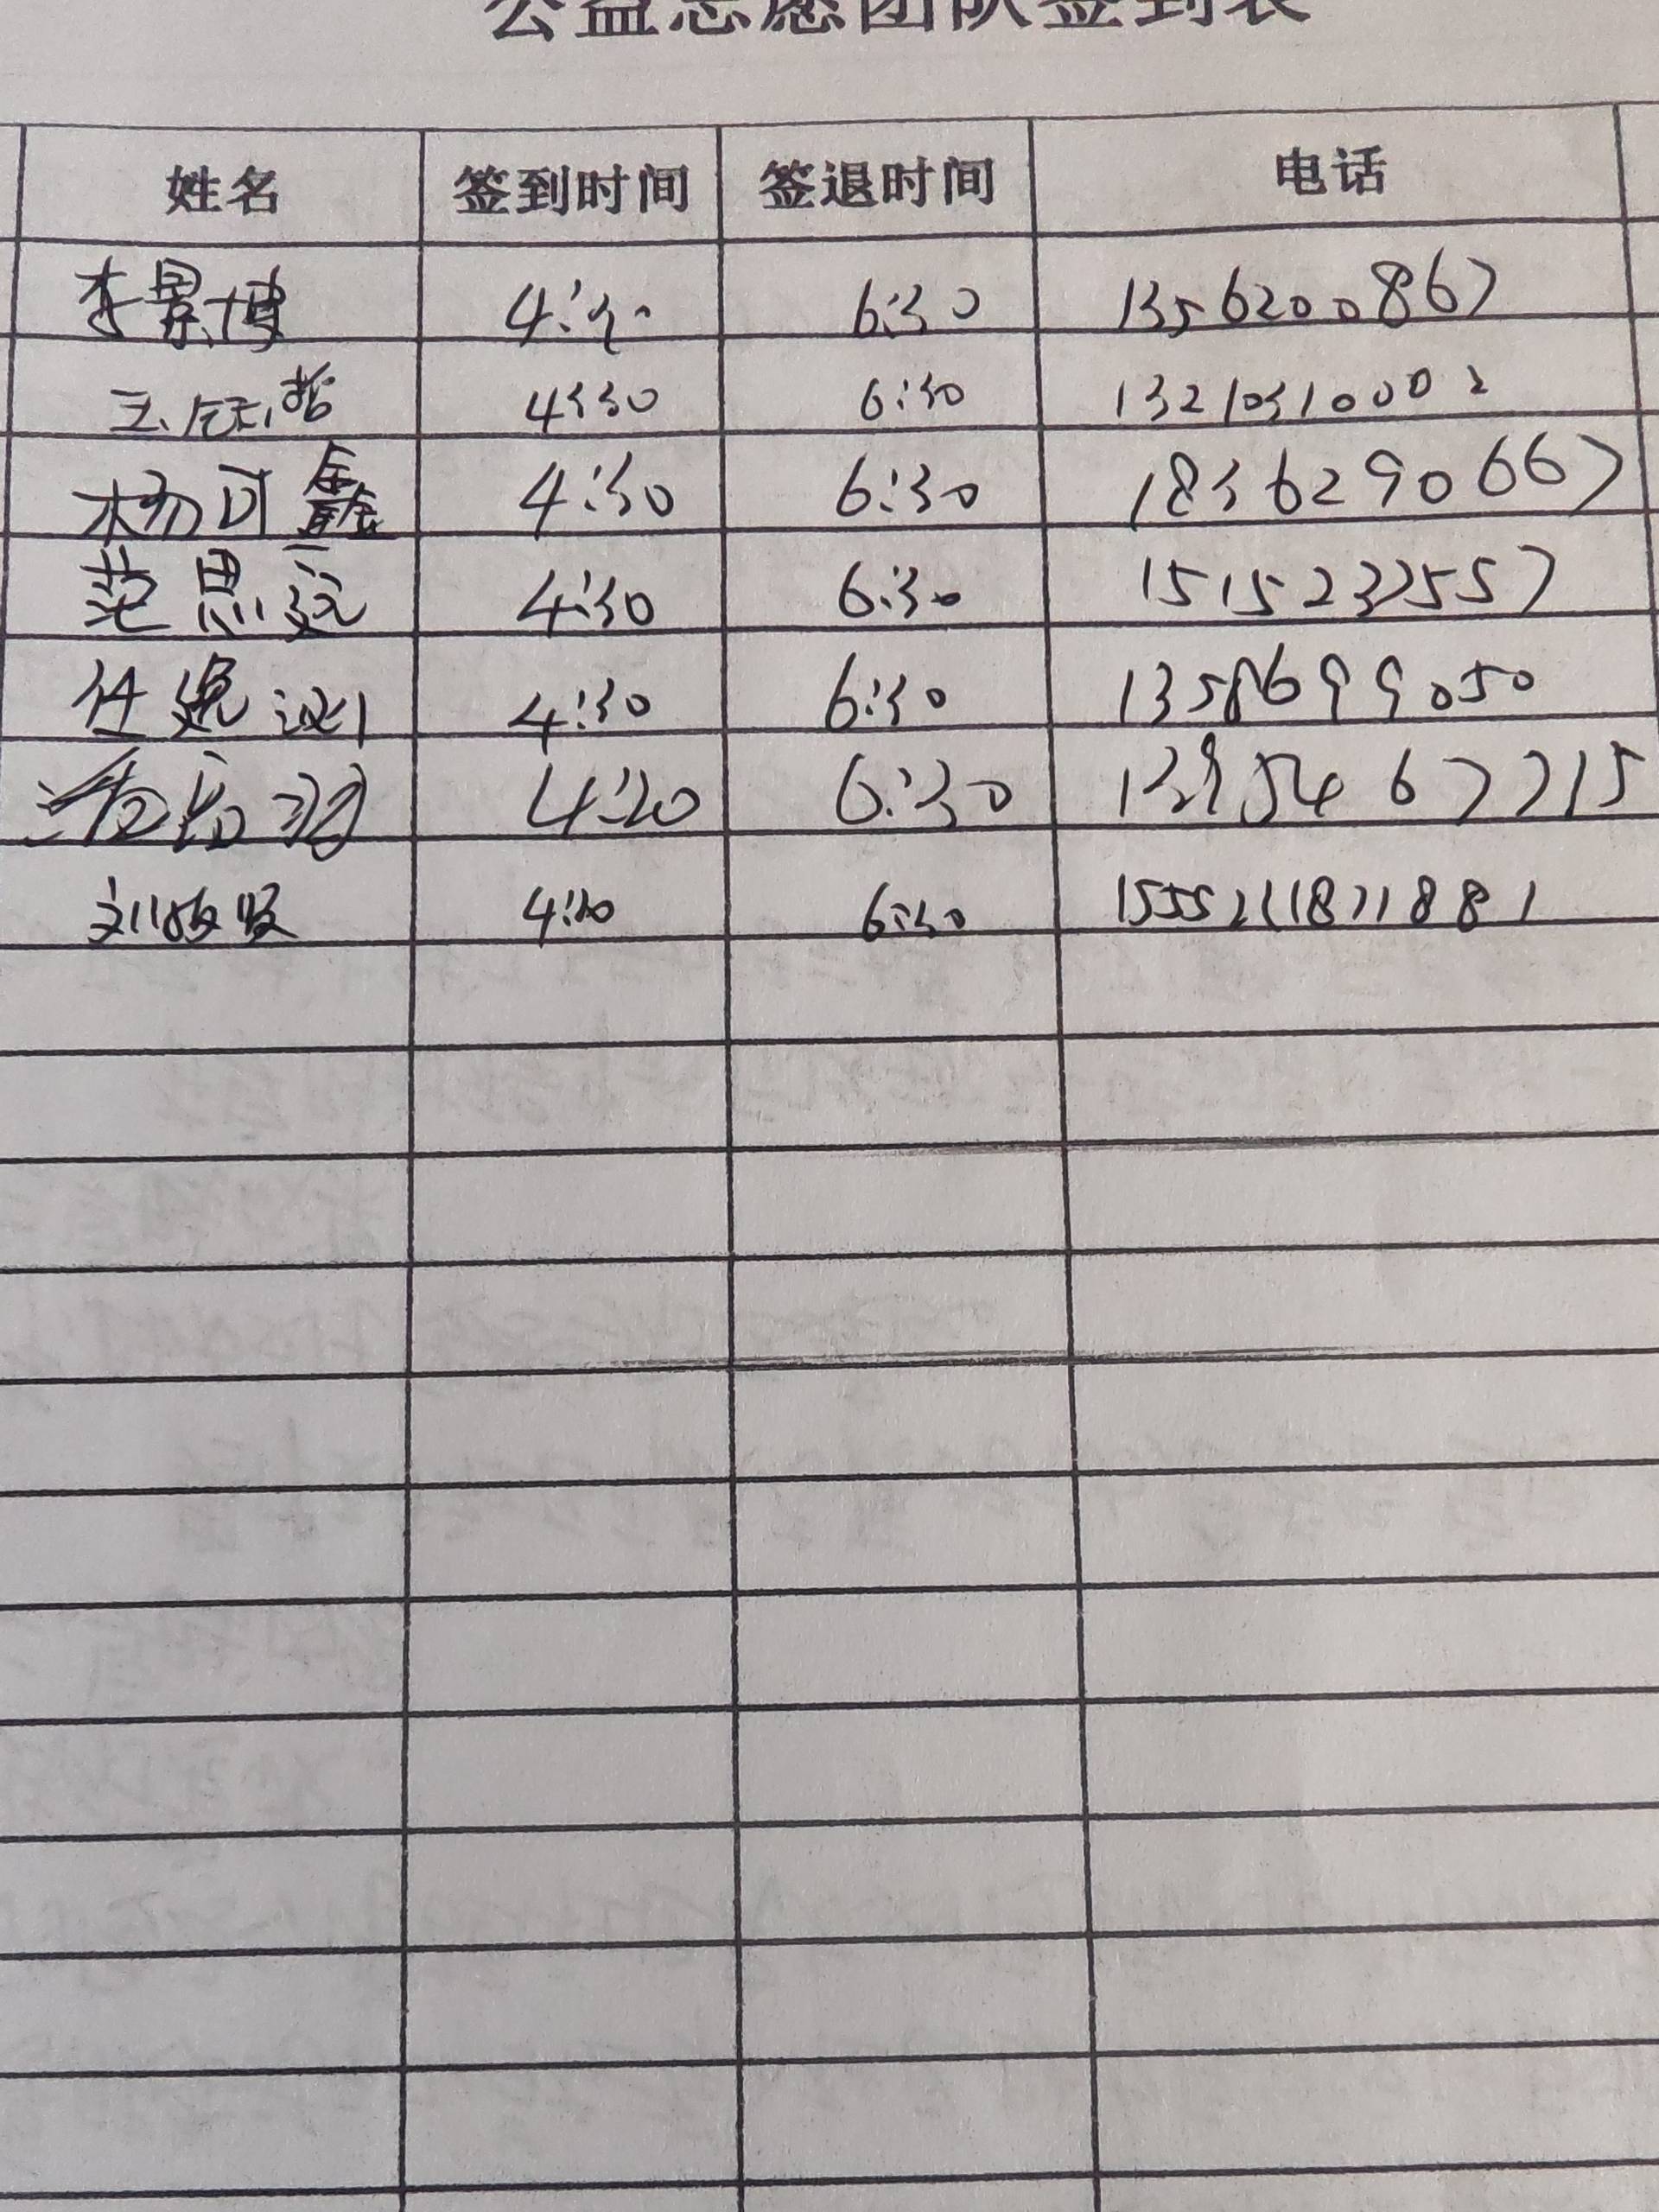 公益志愿团队签到表
姓名 签到时间 签退时间 电话
李景博 4:30 6:30 1356200867
王 哲 4:30 6:30 13210310002
杨可鑫 4:30 6:30 18362990667
范思远 4:30 6:30 15152327557
任 4:30 6:30 13586999050
4:20 6:30 13954677715
刘 4:20 6:30